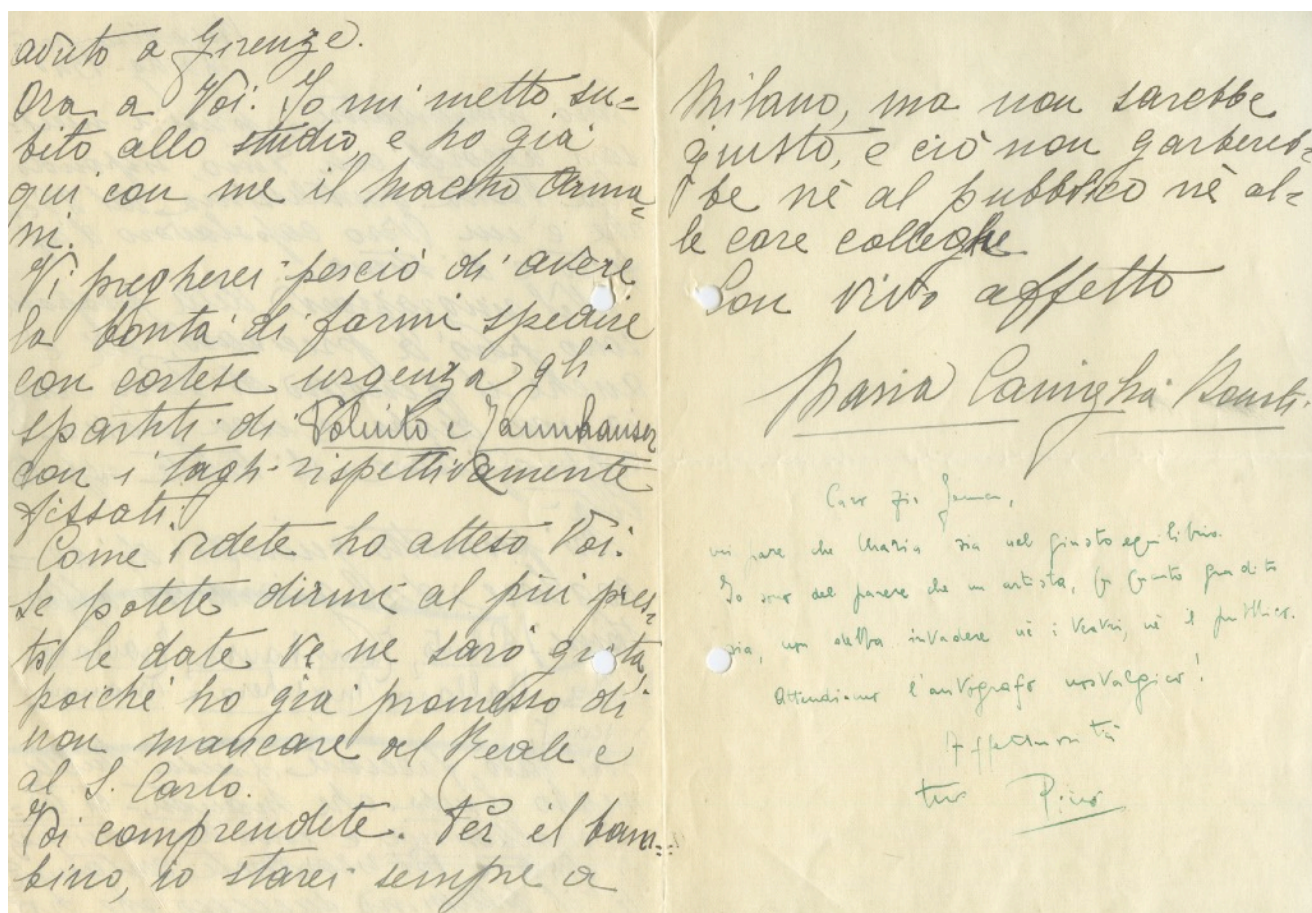 avuto a Firenze.
Ora a Voi. Io mi metto su=
bito allo studio, e ho già
qui con me il Maestro Arma=
ni.
Vi pregherei perciò di avere
la bontà di farmi spedire
con cortese urgenza gli
spartiti di Poliuto e Tannhauser
con i tagli rispettivamente
fissati.
Come vedete ho atteso Voi.
Se potete dirmi al più pres=
to le date Ve ne sarò grata,
poichè ho già promesso di
non mancare al Reale e
al S. Carlo.
Voi comprendete. Per il bam=
bino, io starei sempre a
Milano, ma non sarebbe
giusto, e ciò non garbereb=
be nè al pubblico nè al=
le care colleghe
Con vivo affetto
Maria Caniglia Bonati.
Caro zio
mi pare che Maria sia nel giusto equilibrio.
Io sono del parere che un artista, per quanto gradito
sia, non debba invadere nè i teatri, nè il pubblico.
Attendiamo l'autografo nostalgico!
Affettuosità
tuo Pino